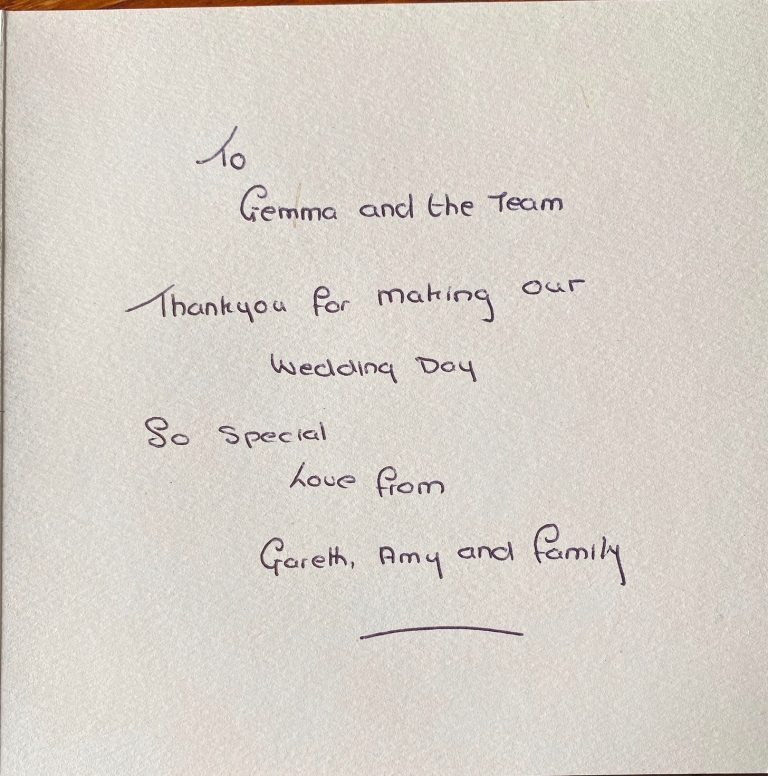 To
Gemma and the Team
Thankyou for making our
Wedding Day
So Special
Love from
Gareth, Amy and family